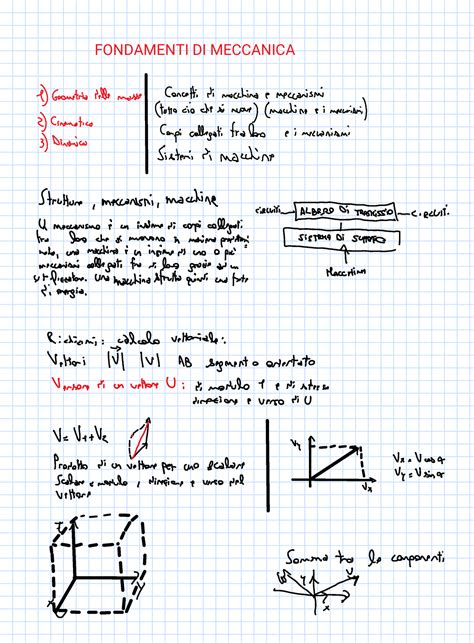 FONDAMENTI DI MECCANICA
1) Geometria delle masse
2) Cinematica
3) Dinamica
Concetti di macchina e meccanismi
(tutto ciò che si muove) (macchine e i meccanismi)
Corpi collegati fra loro e i meccanismi
Sistemi di macchine
Strutture, meccanismi, macchine
U meccanismo è un insieme di corpi collegati
fra loro che si muovono in maniera
nota, una macchina è un insieme di uno o più
meccanismi collegati fra di loro grazie ad un
Una macchina sfrutta quindi una fonte
di energia.
circuiti
ALBERO DI
circuiti
SISTEMA DI
Macchina
Richiami: calcolo vettoriale:
Vettori |V| |V| AB segmento orientato
Versore di un vettore U: di modulo 1 e di stessa
direzione e verso di U
V = V1 + V2
Prodotto di un vettore per uno scalare
Scalare modulo, direzione e verso del
vettore
Vy
Vx
Vx = V cos α
Vy = V sin α
z
y
x
Somma tra le componenti
y
V
x